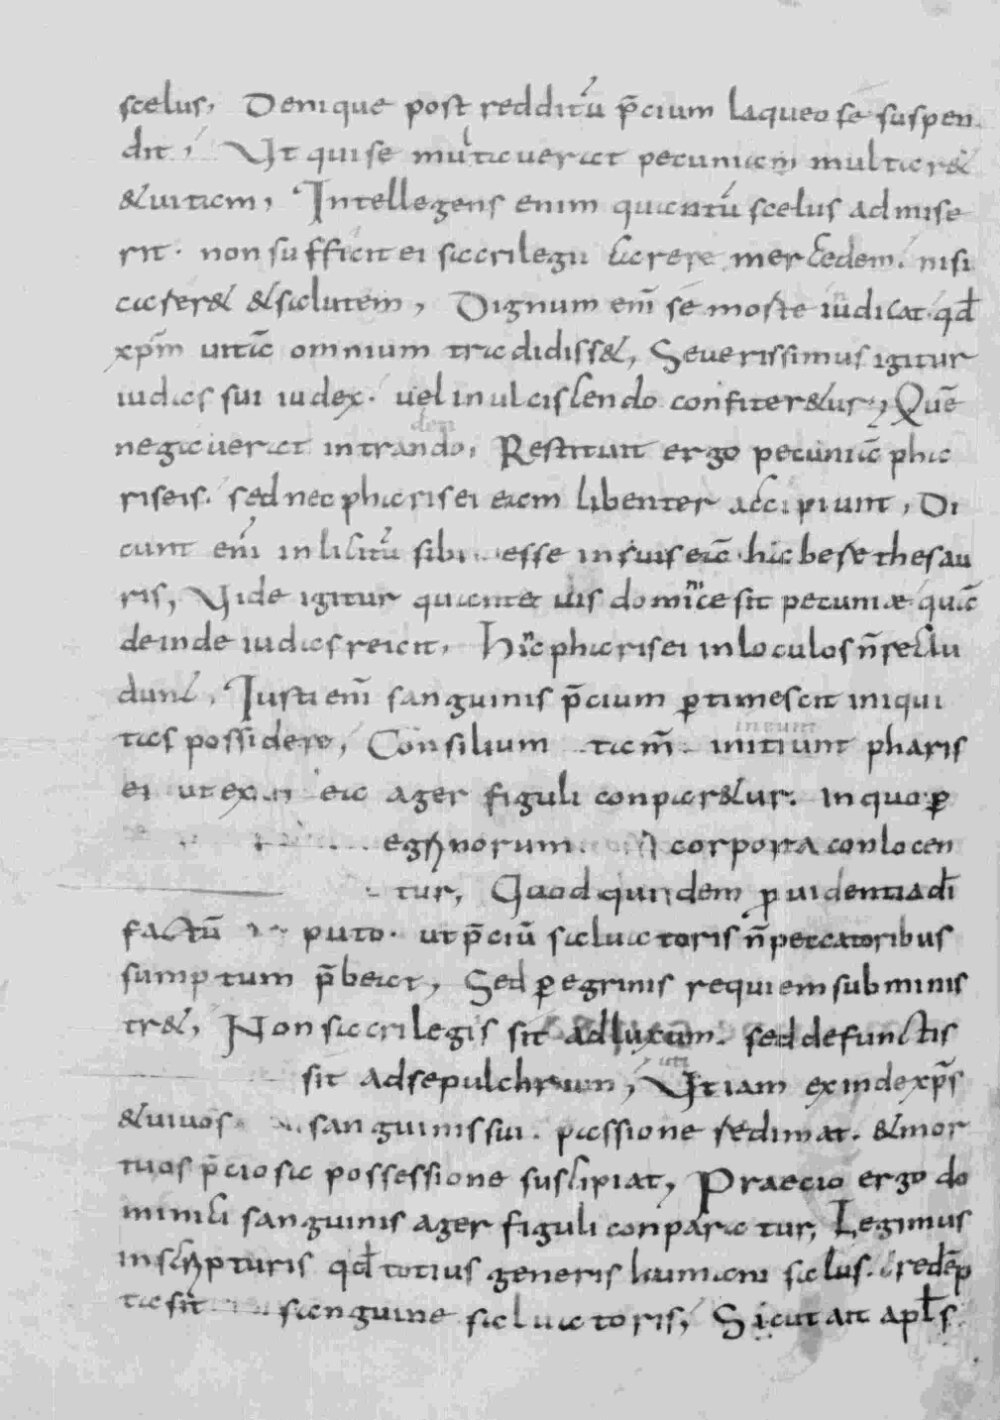 scelus, Denique post redditū p̄cium laqueo se suspen
dit; Ut qui se mutauerat pecuniam multar&
&uitam, Intellegens enim quantū scelus admise
rit. non sufficit ei sacrilegii carere mercedem. nisi
car&er& &salutem, Dignum em̄ se morte iudicat. qđ
xp̄m uitā omnium tradidiss&, Seuerissimus igitur
iudas sui iudex. uel in ulciscendo confiter&ur, Quē
negauerat in tradendo, Restituit ergo pecuniā pha
riseis. sed nec pharisei eam libenter accipiunt, Di
cunt em̄ inlicitū sibi esse in suis eā habere thesau
ris, Uide igitur quante uis dominicę sit pecuniæ quā
deinde iudas reicit, Hanc pharisei in loculos n̄ reclu
dunt, Iusti em̄ sanguinis p̄cium ꝑtimescit iniqui
tas possidere, Consilium tam̄ initiunt pharis
ei ut ex ea ager figuli conpar&ur. in quo ꝑ
egrinorum corpora conlocen
tur, Quod quidem ꝓuidentia dī
factū puto. ut p̄ciū saluatoris n̄ peccatoribus
sumptum p̄beat, Sed ꝑegrinis requiem subminis
tr&, Non sacrilegis sit ad luxum. sed defunctis
sit ad sepulchrum, Utiam exinde xp̄s
&uiuos sanguinis sui. passione redimat. &mor
tuos p̄ciosa possessione suscipiat, Praecio ergo do
minici sanguinis ager figuli conparatur, Legimus
in scripturis qđ totius generis humani salus. redēp
ta sit sanguine saluatoris, Sicut ait apl̄s